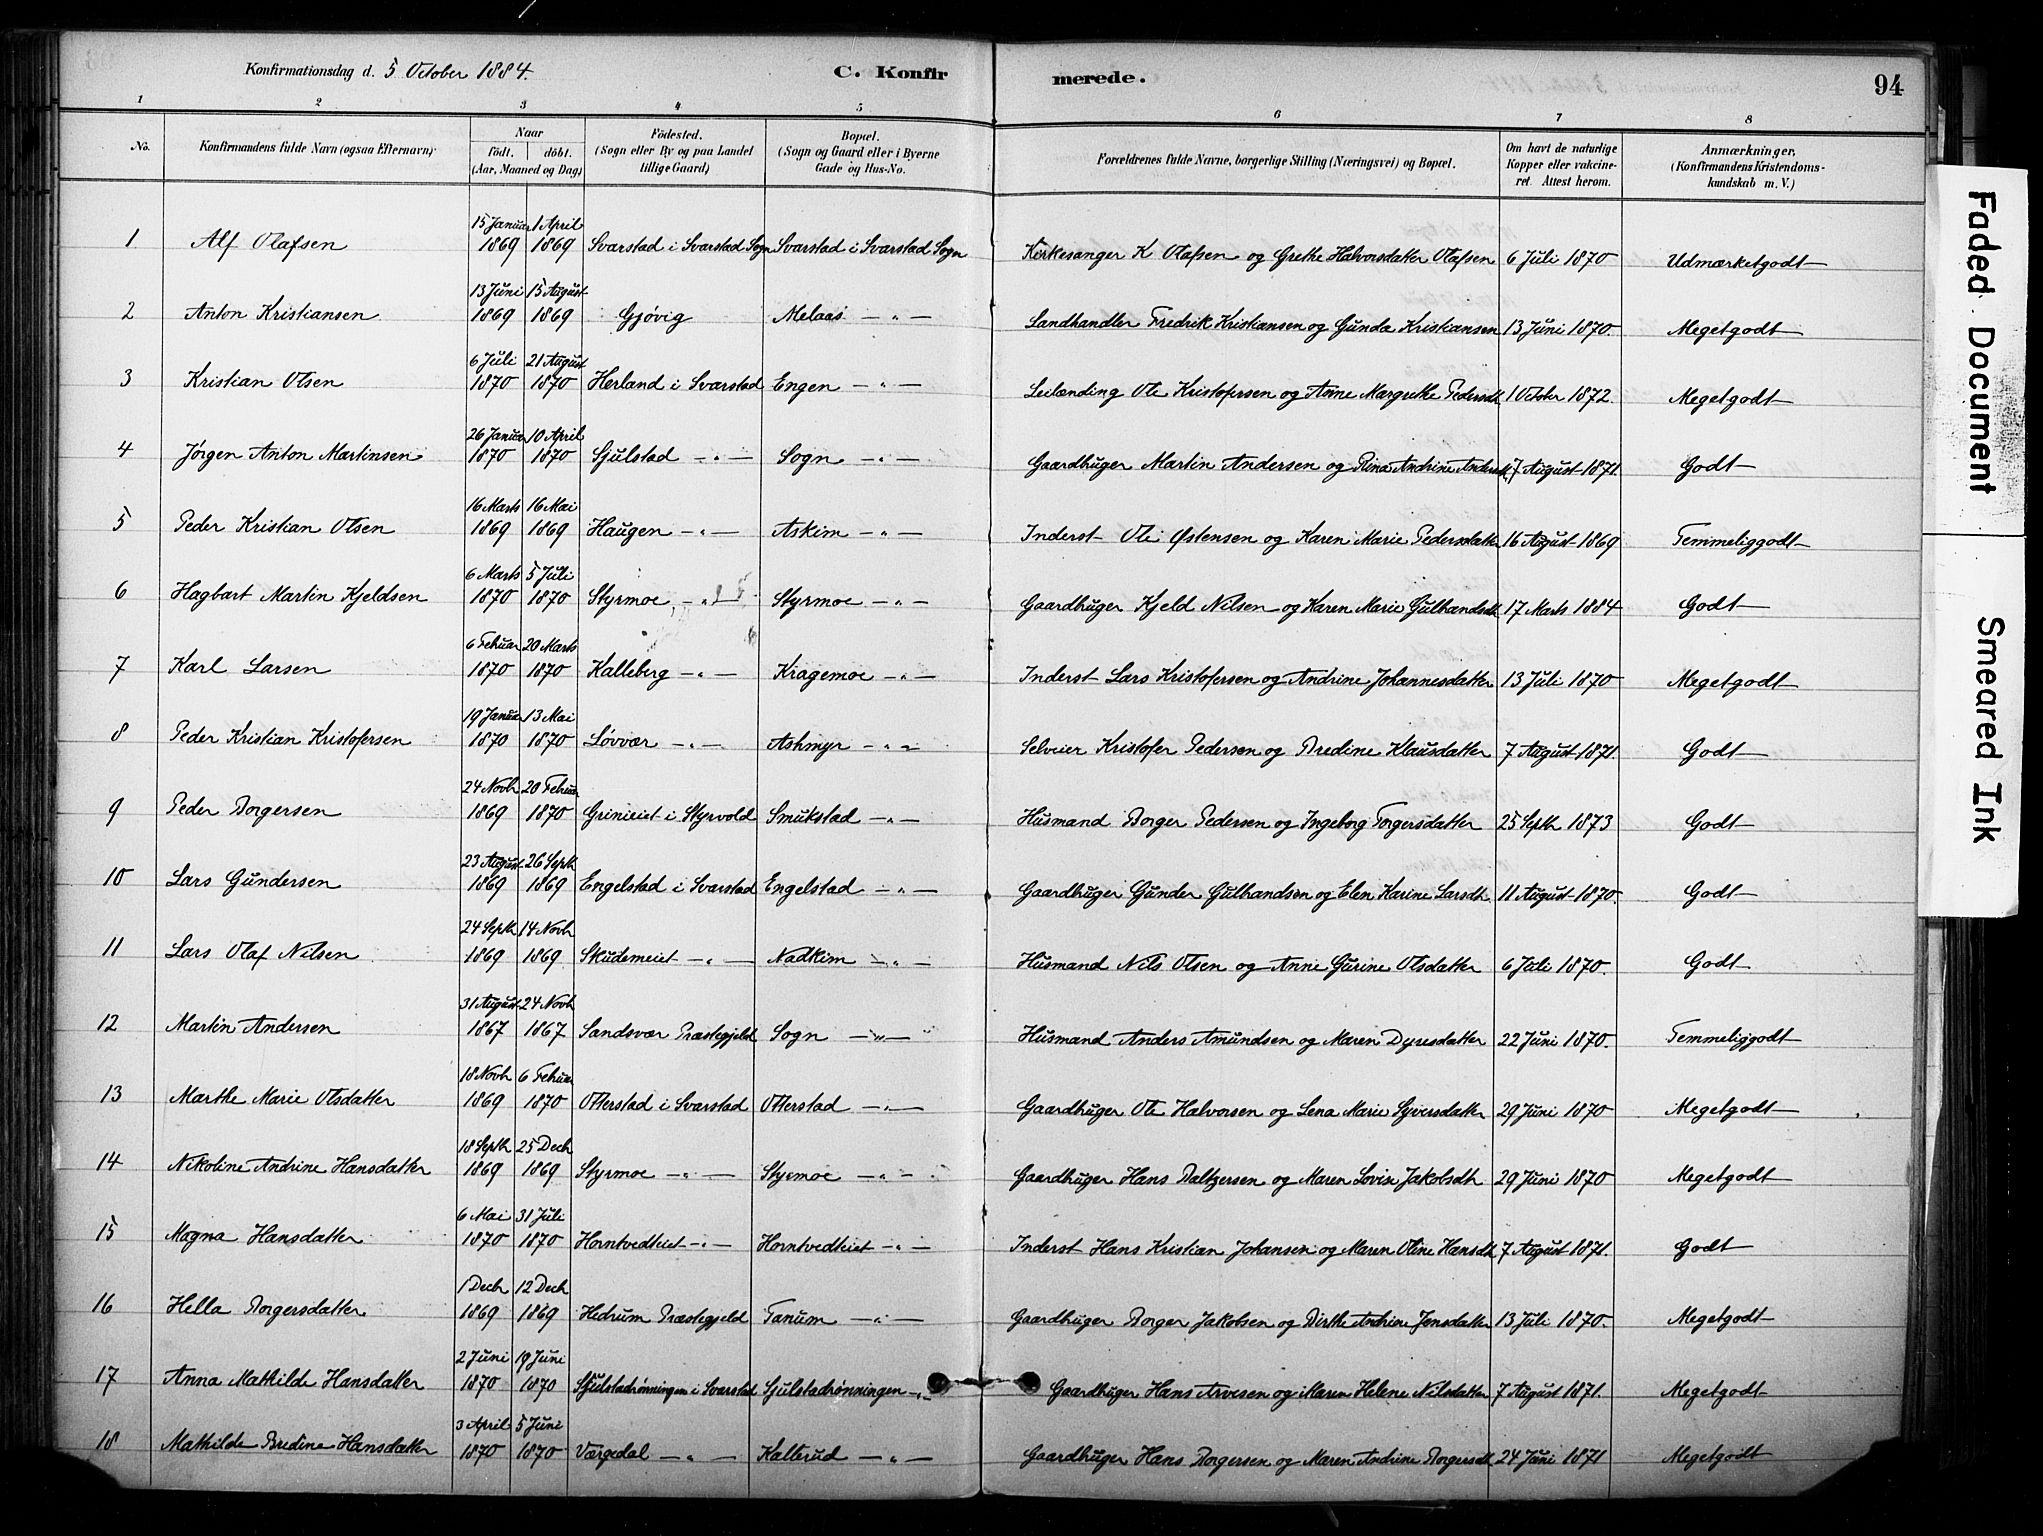 Konfirmationsdag d. 5 October 1884.
C. Konfirmerede.
94
1 2 3 4 5 6 7 8
No.
Konfirmandens fulde Navn (ogsaa Efternavn).
Naar
født. døbt.
(Aar, Maaned og Dag)
Fødested.
(Sogn eller By og paa Landet
tillige Gaard)
Bopæl.
(Sogn og Gaard eller i Byerne
Gade og Hus-No.
Forældrenes fulde Navne, borgerlige Stilling (Næringsvei) og Bopæl.
Om havt de naturlige
Kopper eller vakcine-
ret. Attest herom.
Anmærkninger,
(Konfirmandens Kristendoms-
kundskab m. V.)
1 Alf Olafsen 15 Januar 1869 1 April 1869 Svarstad i Svarstad Sogn Svarstad i Svarstad Sogn Kirkesanger K Olafsen og Grethe Halvorsdatter Olafsen 6 Juli 1870 Udmærketgodt
2 Anton Kristiansen 13 Juni 1869 15 August 1869 Gjøvig Melaas — " — Landhandler Fredrik Kristiansen og Gunda Kristiansen 13 Juni 1870. Megetgodt
3 Kristian Olsen 6 Juli 1870 21 August 1870 Herland i Svarstad Engen — " — Leilænding Ole Kristofersen og Anne Margrethe Pedersdt. 1 October 1872. Megetgodt
4 Jørgen Anton Martinsen 26 Januar 1870 10 April 1870 Sjulstad — " — Sogn — " — Gaardbruger Martin Andersen og Rina Andrine Andersdt. 7 August 1871. Godt
5 Peder Kristian Olsen 16 Marts 1869 16 Mai 1869 Haugen — " — Askim — " — Inderst Ole Østensen og Karen Marie Pedersdatter 16 August 1869 Temmeliggodt
6 Hagbart Martin Kjeldsen 6 Marts 1870 5 Juli 1870 Styrmoe — " — Styrmoe — " — Gaardbruger Kjeld Nilsen og Karen Marie Gulbrandsdt. 17 Marts 1884 Godt
7 Karl Larsen 6 Februar 1870 20 Marts 1870 Kalleberg — " — Kragemoe — " — Inderst Lars Kristofersen og Andrine Johannesdatter 13 Juli 1870 Megetgodt
8 Peder Kristian Kristofersen 19 Januar 1870 13 Mai 1870 Løvvær — " — Askmyr — " — Selveier Kristofer Pedersen og Bredine Klausdatter 7 August 1871. Godt
9 Peder Borgersen 24 Novbr 1869 20 Februar 1870 Grinieiet i Styrvold Smukstad — " — Husmand Borger Pedersen og Ingeborg Torgersdatter 25 Septb 1873 Godt
10 Lars Gundersen 23 August 1869 26 Septb 1869 Engelstad i Svarstad Engelstad — " — Gaardbruger Gunder Gulbrandsen og Elen Karine Larsdt. 11 August 1870. Godt
11 Lars Olaf Nilsen 24 Septb 1869 14 Novbr 1869 Skudemeiet — " — Nadkim — " — Husmand Nils Olsen og Anne Gurine Olsdatter 6 Juli 1870. Godt
12 Martin Andersen 31 August 1867 24 Novbr 1867 Sandsvær Præstegjeld Sogn — " — Husmand Anders Amundsen og Maren Dyresdatter 22 Juni 1870. Temmeliggodt
13 Marthe Marie Olsdatter 18 Novbr 1869 6 Februar 1870 Otterstad i Svarstad Otterstad — " — Gaardbruger Ole Halvorsen og Lena Marie Syversdatter 29 Juni 1870 Megetgodt
14 Nikoline Andrine Hansdatter 18 Septb 1869 25 Decbr 1869 Styrmoe — " — Styrmoe — " — Gaardbruger Hans Baltzersen og Maren Lovise Jakobsdt. 29 Juni 1870 Megetgodt
15 Magna Hansdatter 6 Mai 1870 31 Juli 1870 Horntvedteiet — " — Horntvedteiet — " — Inderst Hans Kristian Johansen og Maren Oline Hansdt. 7 August 1871. Godt
16 Hella Borgersdatter 1 Decbr 1869 12 Decbr 1869 Hedrum Præstegjeld Tanum — " — Gaardbruger Borger Jakobsen og Birthe Andrine Jensdatter 13 Juli 1870. Megetgodt
17 Anna Mathilde Hansdatter 2 Juni 1870 19 Juni 1870 Sjulstadrønningen i Svarstad Sjulstadrønningen — " — Gaardbruger Hans Arvesen og Maren Helene Nilsdatter 7 August 1871. Megetgodt
18 Mathilde Bredine Hansdatter 3 April 1870 5 Juni 1870 Værgedal — " — Kalterud — " — Gaardbruger Hans Borgersen og Maren Andrine Borgersdt. 24 Juni 1871 Megetgodt
Faded Document
Smeared Ink